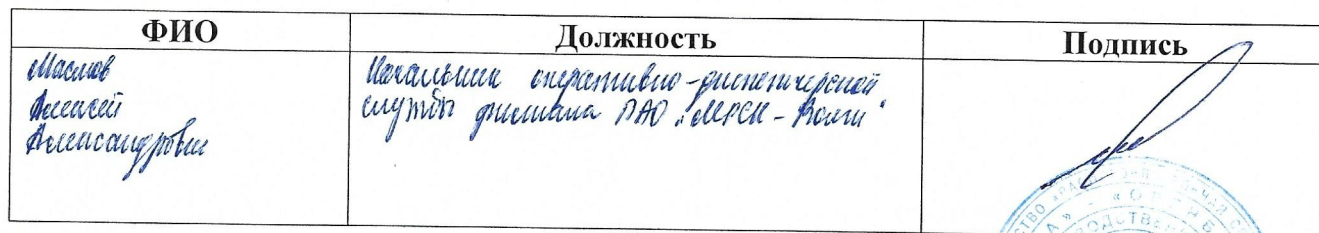 ФИО Должность Подпись
Маслов
Алексей
Александрович
Начальник оперативно-диспетчерской
службы филиала ПАО "МРСК-Волги"